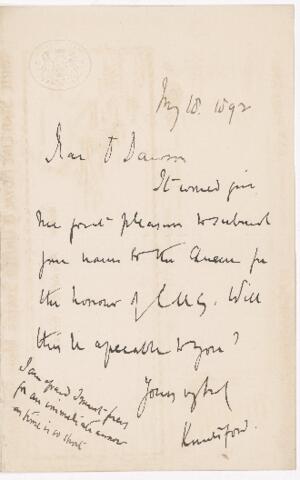 May 18. 1892
Dear Dr Dawson
It would give
me great pleasure to submit
your name to the Queen for
the honour of C.M.G. Will
this be agreeable to you?
Yours vy truly
Knutsford.
I am afraid I must press
for an immediate answer
as time is so short